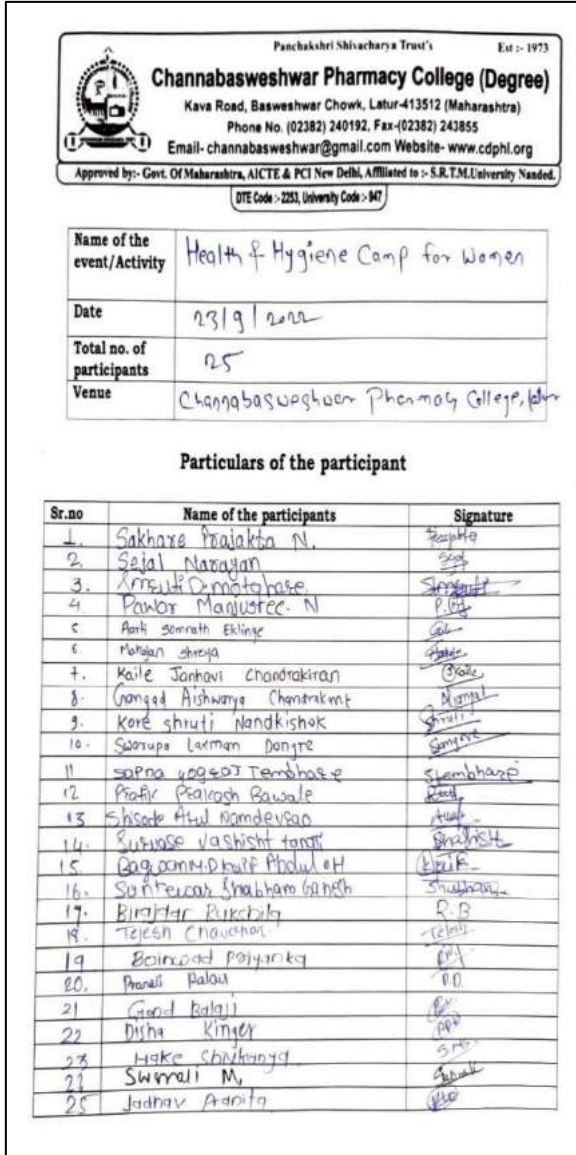 Panchakshri Shivacharya Trust's Est :- 1973
Channabasweshwar Pharmacy College (Degree)
Kava Road, Basweshwar Chowk, Latur-413512 (Maharashtra)
Phone No. (02382) 240192, Fax-(02382) 243855
Email- channabasweshwar@gmail.com Website- www.cdphl.org
Approved by:- Govt. Of Maharashtra, AICTE & PCI New Delhi, Affiliated to :- S.R.T.M.University Nanded.
DTE Code :- 2253, University Code :- 947
Name of the event/Activity Health & Hygiene Camp for Women
Date 23/9/2022
Total no. of participants 25
Venue Channabasweshwar Pharmacy College, latur
Particulars of the participant
Sr.no Name of the participants Signature
1. Sakhare Prajakta N. Prajakta
2. Sejal Narayan
3.
4. Pawar Manjusree. N
5. Aarti somnath Eklinge
6. Mahajan shreya
7. Kaile Janhavi Chandrakiran Kaile
8. Gangad Aishwarya Chandrakant
9. Kore shruti Nandkishok Shruti
10. Swarupa Laxman Dongre
11 sapna yogeoJ Tembhare Stembhare
12 Pratik Prakash Bawale
13 Shisode Atul Namdevrao
14. Survase Vashisht
15. Bagwan M.D Abdul
16. Suntewar Shubham Ganesh Shubham
17. Birajdar Rukshita R.B
18. Tejesh Chavchan Tejesh
19 Boinwad Priyanka
20. Pranali Palav P.D.
21 Good Balaji
22 Disha Kinger
23 Hake Shrikanya
24 Swarnali M.
25 Jadhav Pranita